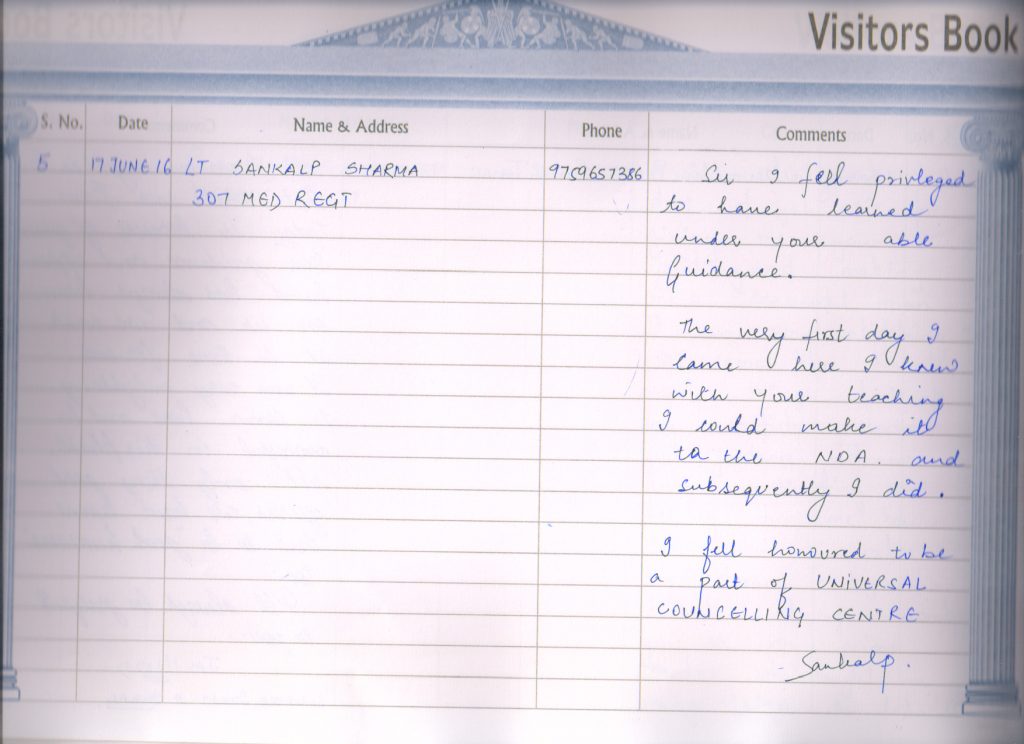 Visitors Book
S. No. Date Name & Address Phone Comments
5 17 JUNE 16 LT SANKALP SHARMA 9759657386 Sir I feel privleged
307 MED REGT to have learned
under your able
Guidance.
The very first day I
came here I knew
with your teaching
I could make it
to the NDA. and
subsequently I did.
I fell honoured to be
a part of UNIVERSAL
COUNCELLING CENTRE
Sankalp.